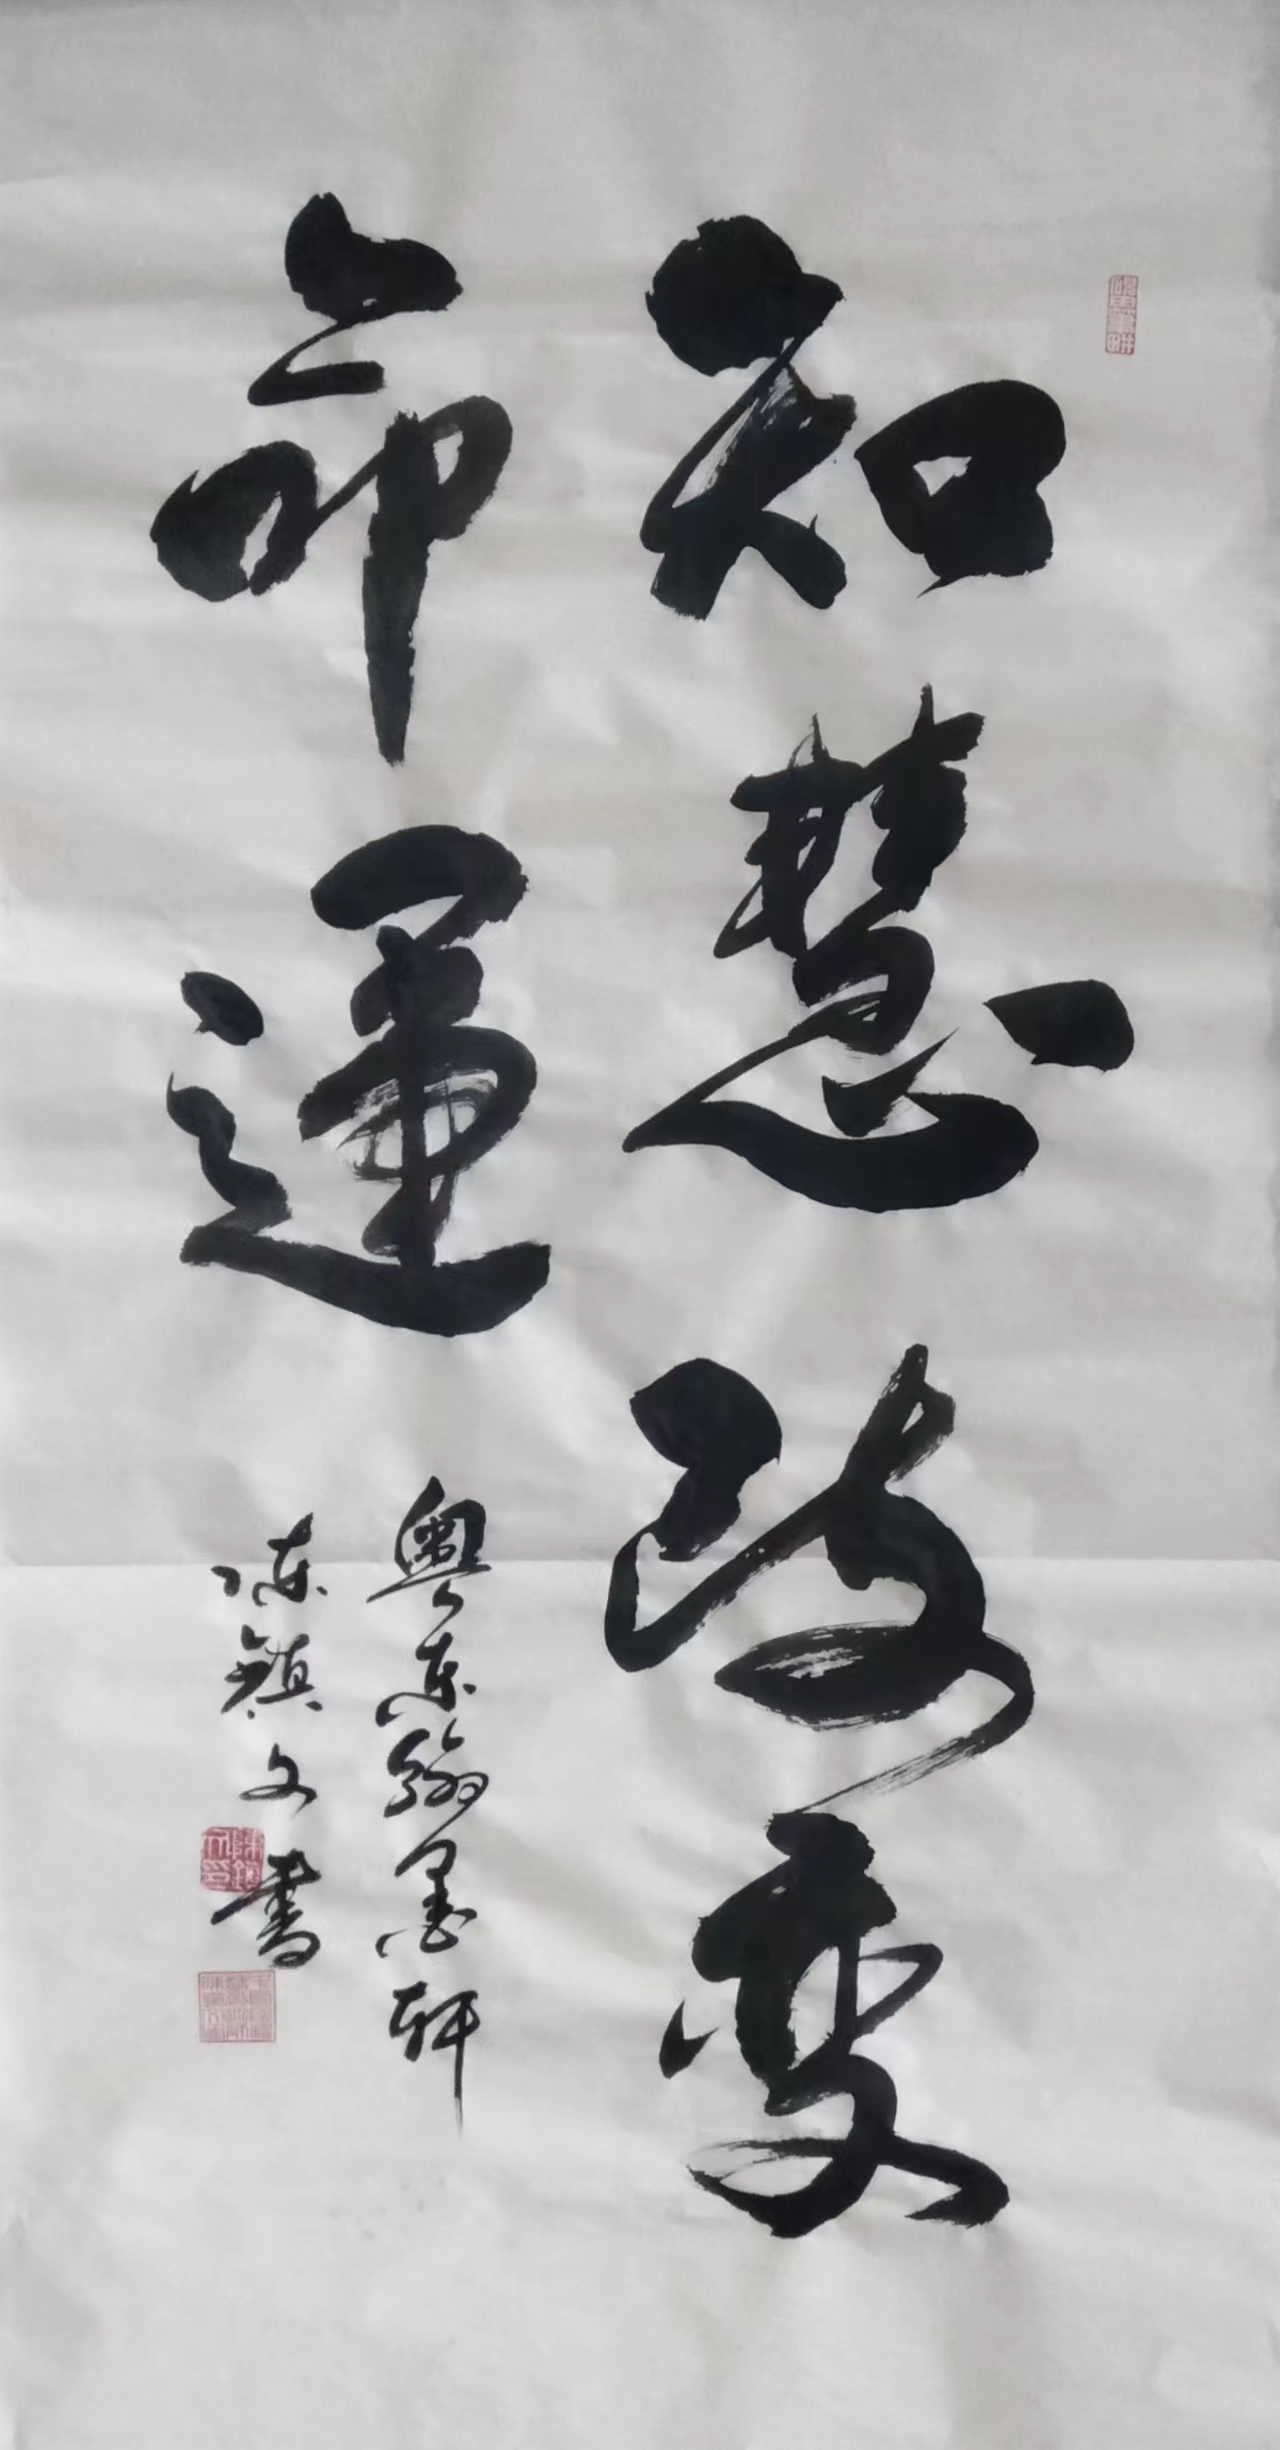 知慧改变
命運
粤东翰墨轩
陈镇文书